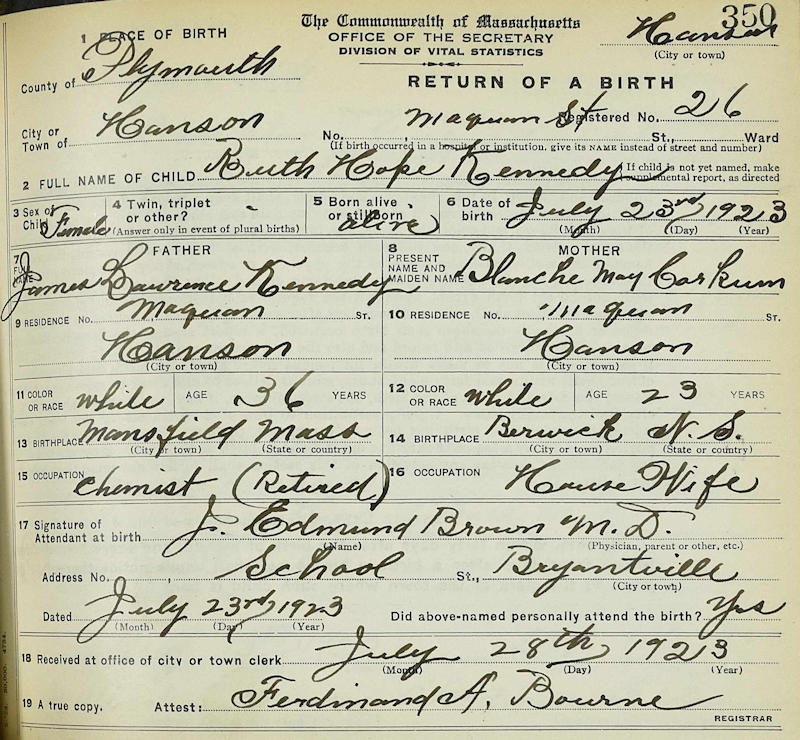 350
The Commonwealth of Massachusetts
Hanson
1 PLACE OF BIRTH
OFFICE OF THE SECRETARY
(City or town)
DIVISION OF VITAL STATISTICS
County of Plymouth
RETURN OF A BIRTH
Registered No. 26
City or Town of Hanson
No. Maquan St St., Ward
(If birth occurred in a hospital or institution, give its NAME instead of street and number)
2 FULL NAME OF CHILD Ruth Hope Kennedy
If child is not yet named, make supplemental report, as directed
3 Sex of Child Female
4 Twin, triplet or other? -
(Answer only in event of plural births)
5 Born alive or stillborn alive
6 Date of birth July 23rd 1923
(Month) (Day) (Year)
7 FULL NAME FATHER
James Lawrence Kennedy
8 PRESENT NAME AND MAIDEN NAME MOTHER
Blanche May Corkum
9 RESIDENCE No. Maquan ST.
Hanson
(City or town)
10 RESIDENCE No. Maquan ST.
Hanson
(City or town)
11 COLOR OR RACE white AGE 36 YEARS
12 COLOR OR RACE while AGE 23 YEARS
13 BIRTHPLACE Mansfield Mass
(City or town) (State or country)
14 BIRTHPLACE Berwick N.S.
(City or town) (State or country)
15 OCCUPATION Chemist (Retired)
16 OCCUPATION House Wife
17 Signature of Attendant at birth J. Edmund Brown M.D.
(Name) (Physician, parent or other, etc.)
Address No. , School St., Bryantville
(City or town)
Dated July 23rd 1923
(Month) (Day) (Year)
Did above-named personally attend the birth? Yes
18 Received at office of city or town clerk July 28th 1923
(Month) (Day) (Year)
19 A true copy. Attest: Ferdinand A. Bourne
REGISTRAR